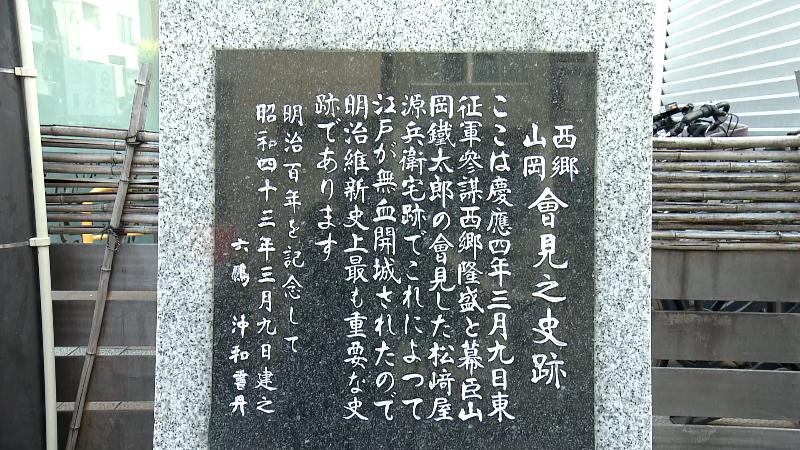 西郷
山岡
會見之史跡
ここは慶應四年三月九日東
征軍參謀西郷隆盛と幕臣山
岡鐵太郎の會見した松﨑屋
源兵衛宅跡でこれによつて
江戸が無血開城されたので
明治維新史上最も重要な史
跡であります
明治百年を記念して
昭和四十三年三月九日建之